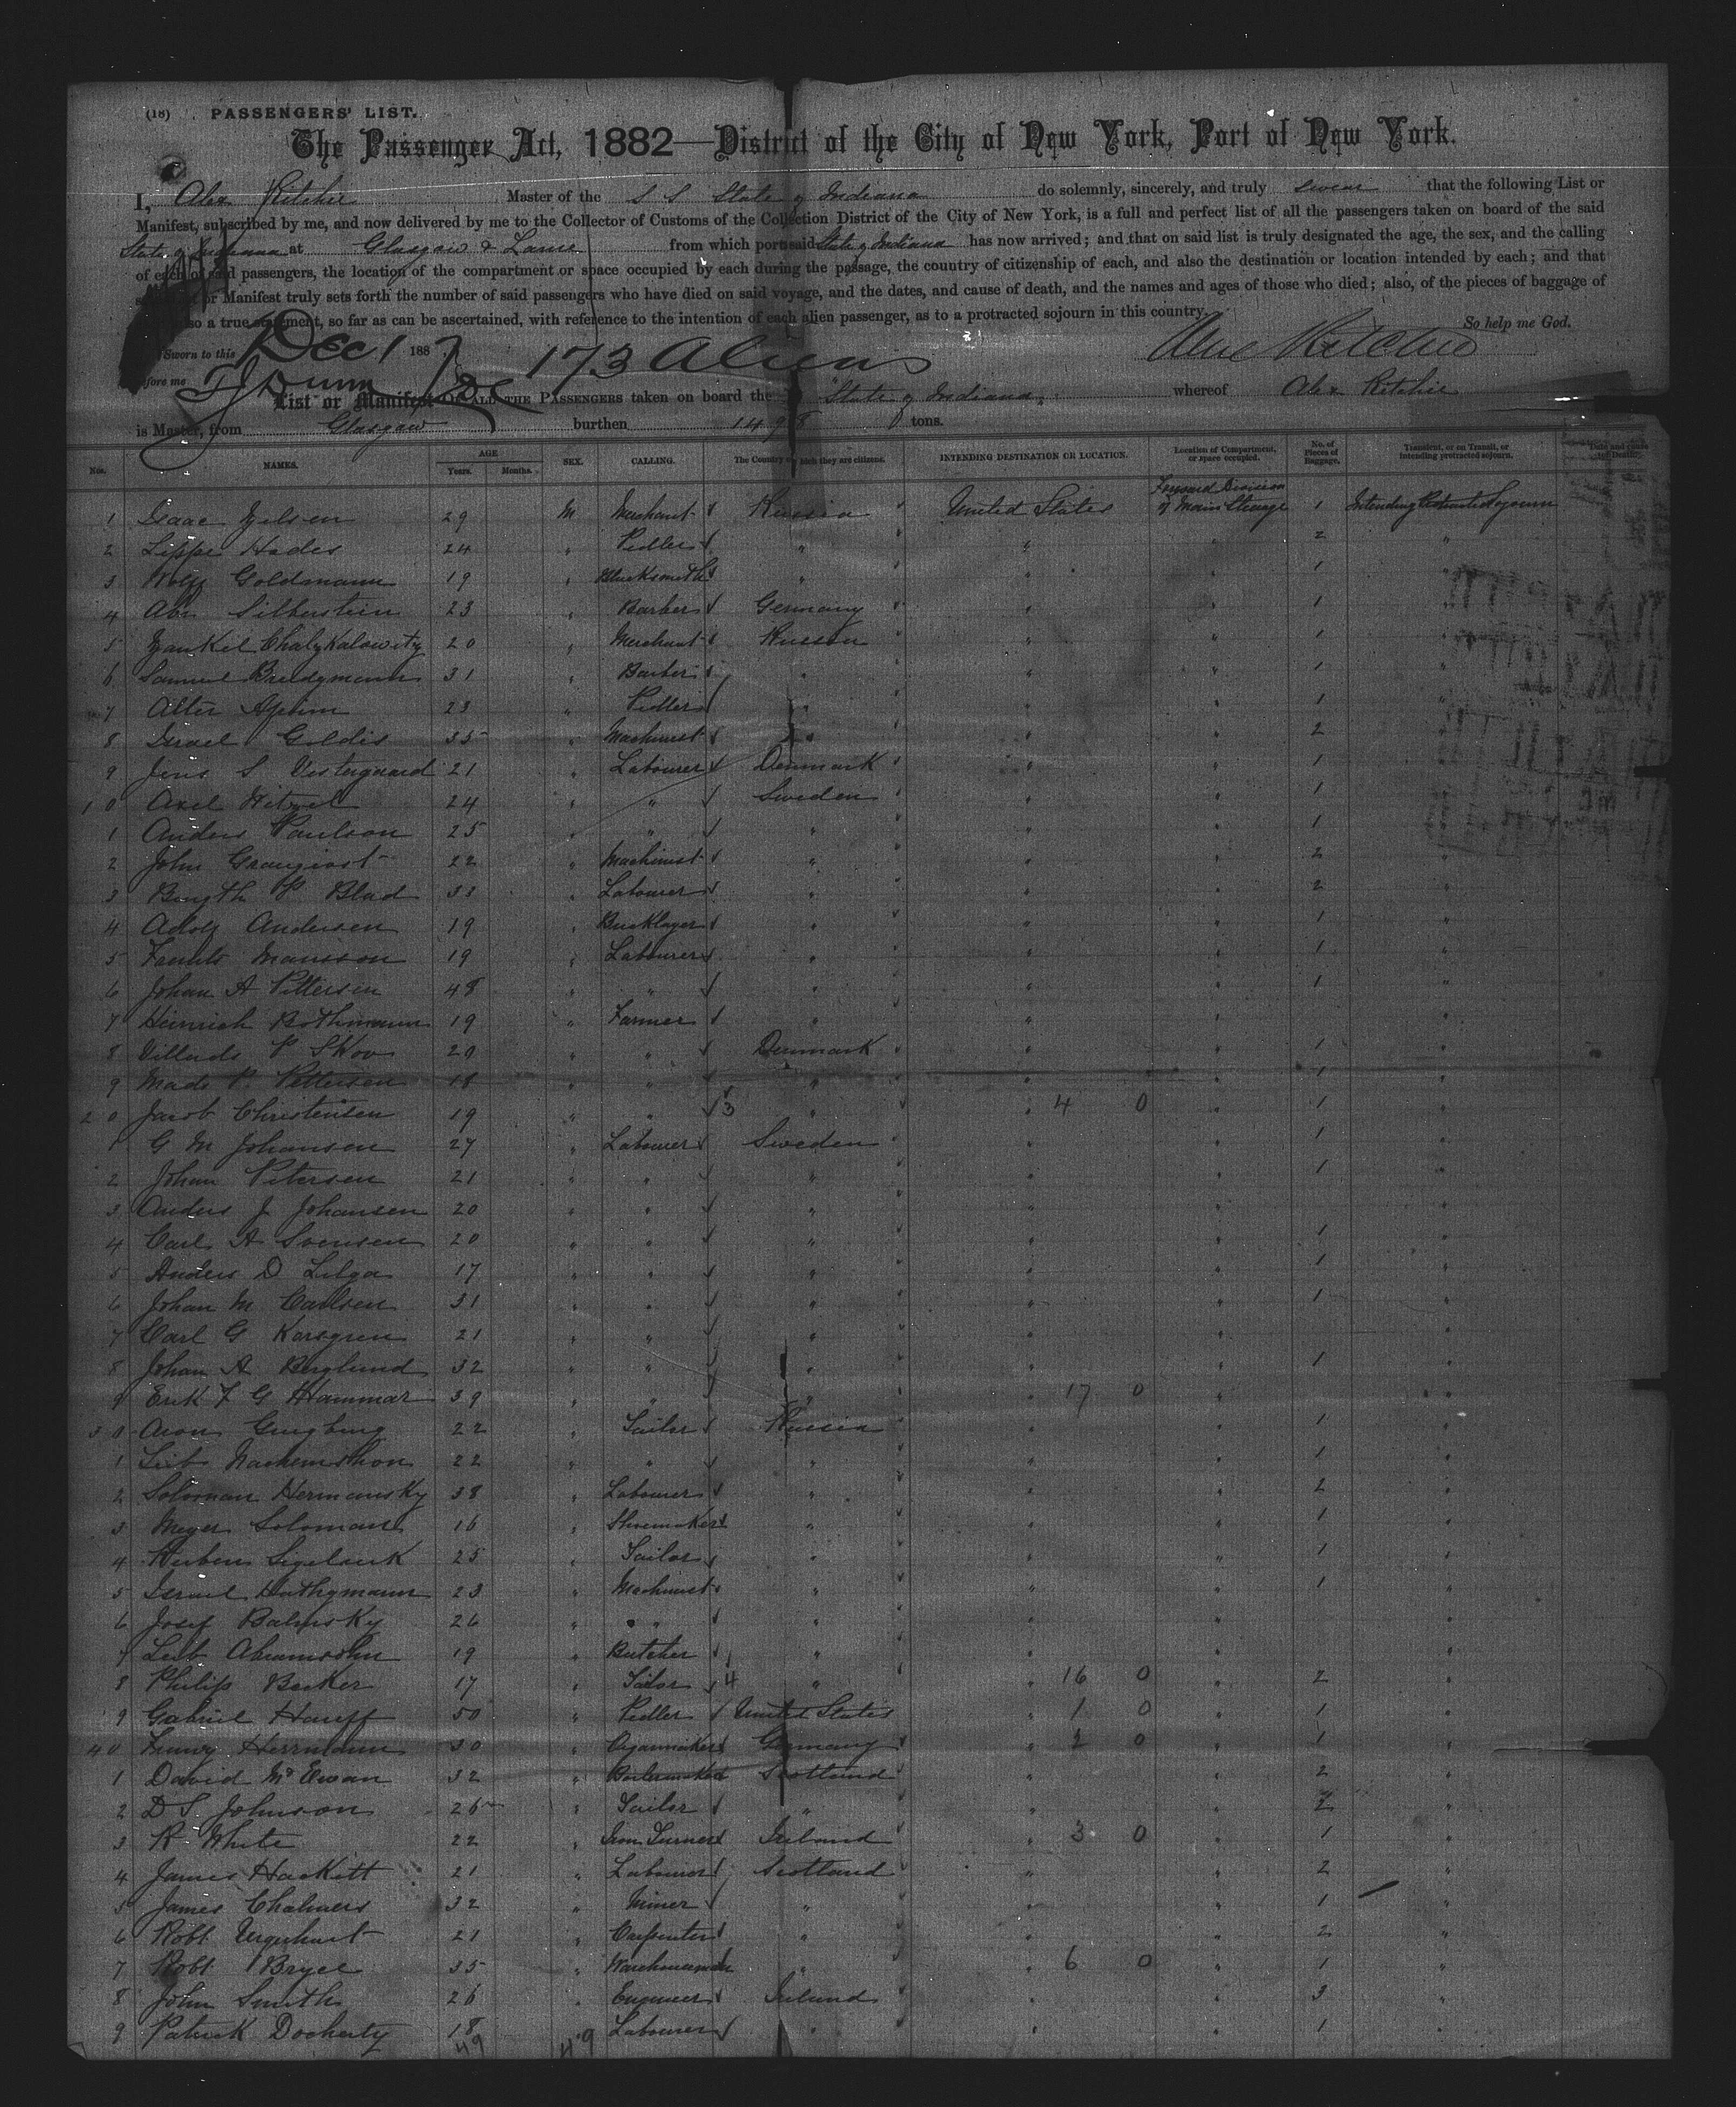 (18) PASSENGERS' LIST.
The Passenger Act, 1882—District of the City of New York, Port of New York.
I, Alex Ritchie Master of the S S State of Indiana do solemnly, sincerely, and truly swear that the following List or
Manifest, subscribed by me, and now delivered by me to the Collector of Customs of the Collection District of the City of New York, is a full and perfect list of all the passengers taken on board of the said
State of Indiana at Glasgow & Larne from which port said State of Indiana has now arrived; and that on said list is truly designated the age, the sex, and the calling
of each of said passengers, the location of the compartment or space occupied by each during the passage, the country of citizenship of each, and also the destination or location intended by each; and that
or Manifest truly sets forth the number of said passengers who have died on said voyage, and the dates, and cause of death, and the names and ages of those who died; also, of the pieces of baggage of
so a true statement, so far as can be ascertained, with reference to the intention of each alien passenger, as to a protracted sojourn in this country.
So help me God.
Sworn to this Dec 1 188 173 Aliens Alex Ritchie
before me T J Dunn
List or Manifest OF ALL THE PASSENGERS taken on board the State of Indiana whereof Alex Ritchie
is Master, from Glasgow burthen 1498 tons.
Nos. NAMES. AGE Years. Months. SEX. CALLING. The Country of which they are citizens. INTENDING DESTINATION OR LOCATION. Location of Compartment, or space occupied. No. of Pieces of Baggage. Transient, or on Transit, or intending protracted sojourn. Date and cause of Death.
1 Isaac 29 M Merchant Russia United States Forward Division of Main Steerage 1 Intending Protracted Sojourn
2 Lippe Hades 24 " Pedler " " " 2 "
3 Wolff Goldmann 19 " Blacksmith " " " 1 "
4 Abr Silberstein 23 " Barber Germany " " 1 "
5 Yankel 20 " Merchant Russia " " 1 "
6 Samuel 31 " Barber " " " 1 "
7 Alter 23 " Pedler " " " 1 "
8 Israel Goldis 35 " Machinist " " " 2 "
9 Jens S Vestergaard 21 " Labourer Denmark " " 1 "
10 Axel 24 " " Sweden " " 1 "
1 Anders Paulson 25 " " " " " 1 "
2 John 22 " Machinist " " " 2 "
3 P Blad " Labourer " " " 2 "
4 Adolf Andersen 19 " Bricklayer " " " 1 "
5 19 " Labourer " " " 1 "
6 Johan A Pettersen 48 " " " " " 1 "
7 Heinrich Bothmann 19 " Farmer " " " "
8 Villads P Skov 29 " " Denmark " " 1 "
9 Mads P. Pettersen 18 " " " " " 1 "
20 Jacob Christensen 19 " " 3 " " 4 0 " 1 "
1 G M Johansen 27 " Labourer Sweden " " 1 "
2 Johan Petersen 21 " " " " " 1 "
3 Anders J Johansen 20 " " " " " "
4 Carl A Svensen 20 " " " " " 1 "
5 Anders D Lilga 17 " " " " " 1 "
6 Johan M Carlsen 31 " " " " " 1 "
7 Carl G Korsgren 21 " " " " " "
8 Johan A Berglund 32 " " " " " 1 "
9 Erik F G Hammar 39 " " " " 17 0 " "
30 Aron 22 " Tailor Russia " " 1 "
1 Leib 22 " " " " " 1 "
2 Soloman Hermansky 38 " Labourer " " " 2 "
3 Meyer Soloman 16 " Shoemaker " " " 1 "
4 25 " Tailor " " " 1 "
5 Israel 23 " Machinist " " " 1 "
6 Josef Balinsky 26 " " " " " "
7 Leib Abramsohn 19 " Butcher " " " "
8 Philip Becker 17 " Tailor 4 " " 16 0 " 2 "
9 Gabriel 50 " Pedler United States " 1 0 " 1 "
40 Herrmann 30 " Organmaker Germany " 2 0 " 1 "
1 David McEwan 32 " Boilermaker Scotland " " 2 "
2 D S Johnson 26 " Tailor " " " 2 "
3 R White 22 " Iron Turner Ireland " 3 0 " 1 "
4 James Hackett 21 " Labourer Scotland " " 2 "
5 James Chalmers 32 " Miner " " " 1 "
6 Robt Urquhart 21 " Carpenter " " " 2 "
7 Robt Bryce 35 " Warehouseman " " 6 0 " 1 "
8 John Smith 26 " Engineer Ireland " " 3 "
9 Patrick Docherty 18 " Labourer " " " 1 "
49 49